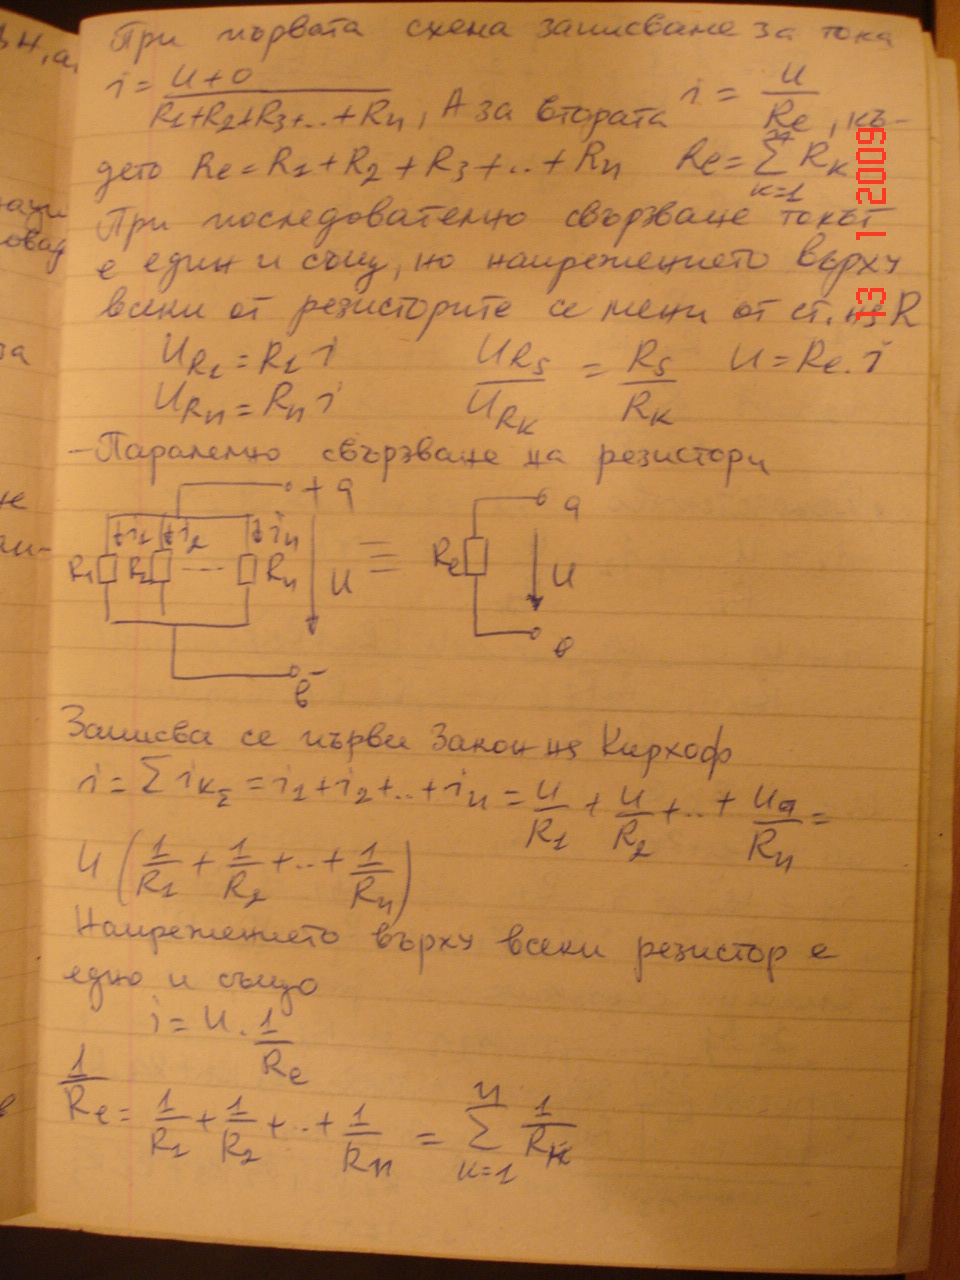 При първата схема записваме за тока
i = U+0 / R1+R2+R3+..+Rn, А за втората i = U / Re, къ-
дето Re = R1 + R2 + R3 +..+ Rn Re = Σ Rk k=1 n
При последователно свързване токът
е един и същ, но напрежението върху
всеки от резисторите се мени от ст. на R
UR1 = R1 i URs / URk = Rs / Rk U = Re. i
URn = Rn i
- Паралелно свързване на резистори
+ a a
i1 i2 in
R1 R2 --- Rn U ≡ Re U
- в в
Записва се първи Закон на Кирхоф
i = Σ ikΣ = i1 + i2 +..+ in = U/R1 + U/R2 +..+ Ua/Rn =
U (1/R1 + 1/R2 +..+ 1/Rn)
Напрежението върху всеки резистор е
едно и също
i = U . 1/Re
1/Re = 1/R1 + 1/R2 +..+ 1/Rn = Σ 1/Rk k=1 n
13 1 2009